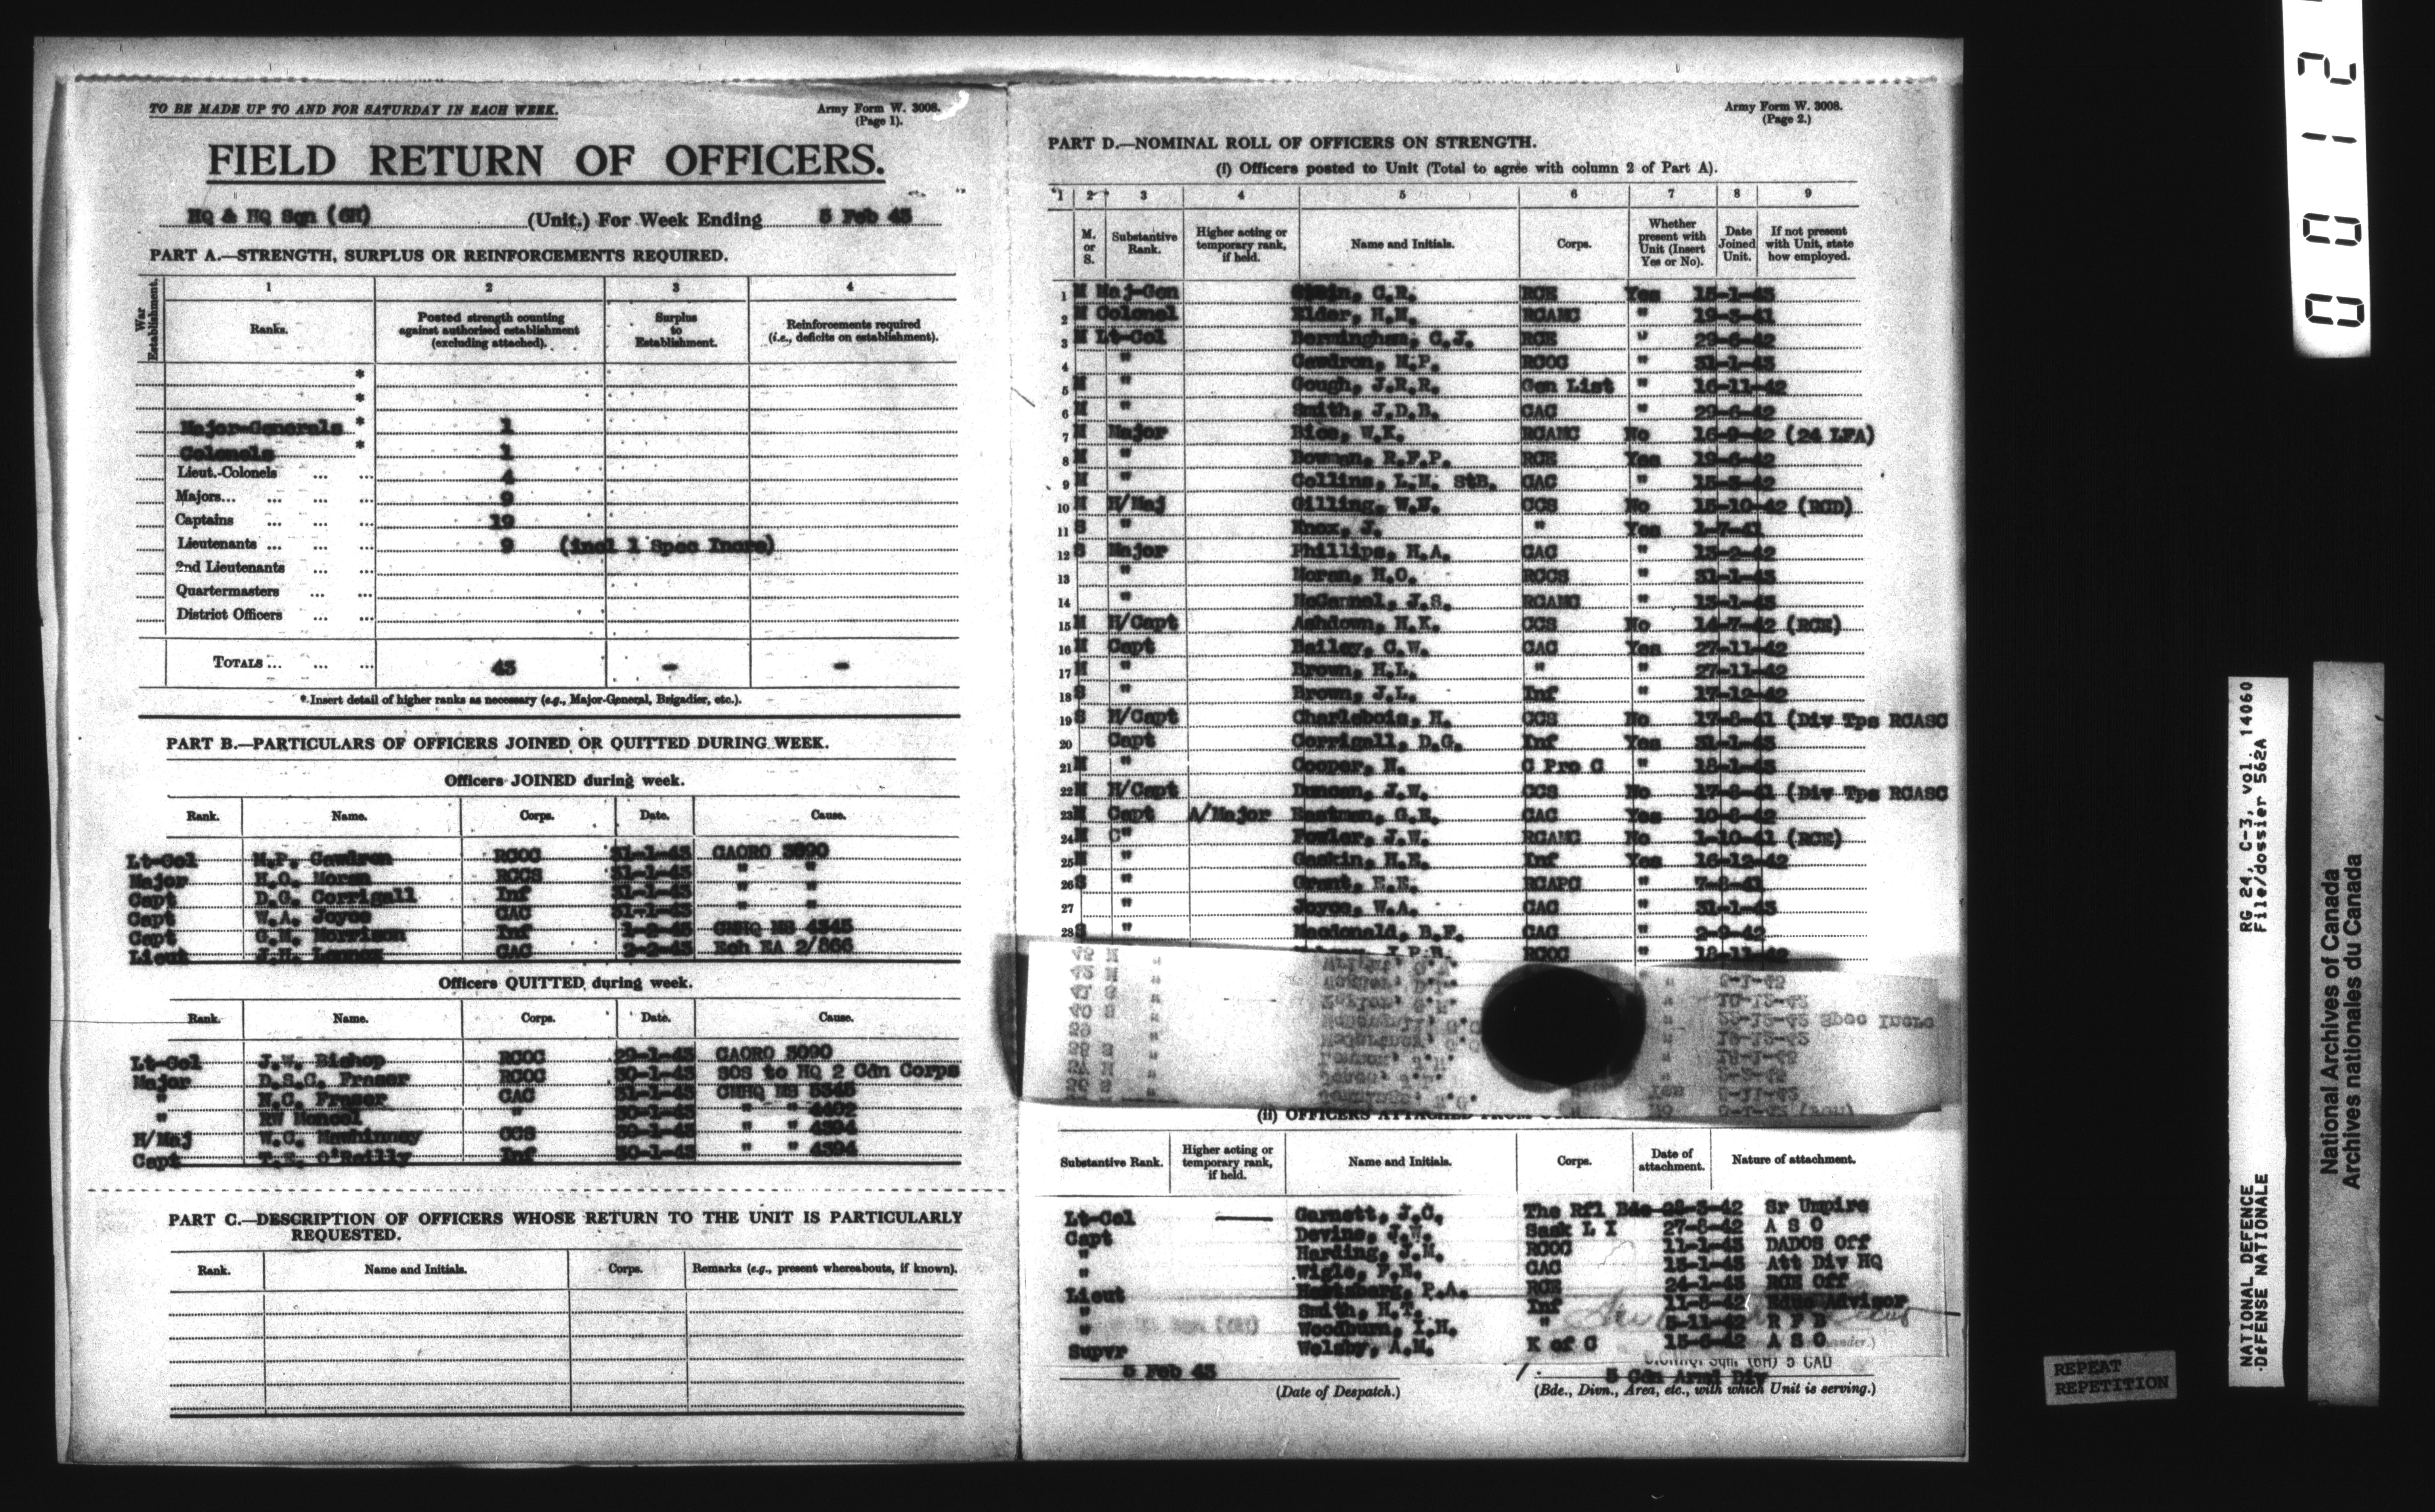 TO BE MADE UP TO AND FOR SATURDAY IN EACH WEEK.
Army Form W. 3008.
(Page 1).
FIELD RETURN OF OFFICERS.
HQ & HQ Sqn (GH) (Unit.) For Week Ending 5 Feb 43
PART A.—STRENGTH, SURPLUS OR REINFORCEMENTS REQUIRED.
War Establishment.
1 2 3 4
Ranks.
Posted strength counting against authorised establishment (excluding attached).
Surplus to Establishment.
Reinforcements required (i.e., deficits on establishment).
*
*
Major-Generals * 1
Colonels * 1
Lieut.-Colonels ... ... 4
Majors... ... ... ... 9
Captains ... ... ... 19
Lieutenants ... ... ... 9 (incl 1 Spec Incre)
2nd Lieutenants ... ...
Quartermasters ... ...
District Officers ... ...
TOTALS ... ... ... 43 - -
* Insert detail of higher ranks as necessary (e.g., Major-General, Brigadier, etc.).
PART B.—PARTICULARS OF OFFICERS JOINED OR QUITTED DURING WEEK.
Officers JOINED during week.
Rank. Name. Corps. Date. Cause.
Lt-Col M.P. Cawdron RCOC 31-1-43 CAORO 3090
Major H.O. Moran RCCS 31-1-43 " "
Capt D.G. Corrigall Inf 31-1-43 " "
Capt W.A. Joyce CAC 31-1-43 " "
Capt G.M. Morrison Inf 1-2-43 CMHQ MS 4345
Lieut J.H. Lennox CAC 2-2-43 Ech EA 2/866
Officers QUITTED during week.
Rank. Name. Corps. Date. Cause.
Lt-Col J.W. Bishop RCOC 29-1-43 CAORO 3090
Major D.S.C. Fraser RCOC 30-1-43 SOS to HQ 2 Cdn Corps
" N.C. Fraser CAC 31-1-43 CMHQ MS 5345
" RW Moncel " 30-1-43 " " 4402
H/Maj W.C. Mawhinney CCS 30-1-43 " " 4394
Capt T.E. O'Reilly Inf 30-1-43 " " 4394
PART C.—DESCRIPTION OF OFFICERS WHOSE RETURN TO THE UNIT IS PARTICULARLY
REQUESTED.
Rank. Name and Initials. Corps. Remarks (e.g., present whereabouts, if known).
Army Form W. 3008.
(Page 2.)
PART D.—NOMINAL ROLL OF OFFICERS ON STRENGTH.
(i) Officers posted to Unit (Total to agree with column 2 of Part A).
*1 2 3 4 5 6 7 8 9
M. or S.
Substantive Rank.
Higher acting or temporary rank, if held.
Name and Initials.
Corps.
Whether present with Unit (Insert Yes or No).
Date Joined Unit.
If not present with Unit, state how employed.
1 M Maj-Gen C.R. RCE Yes 15-1-43
2 M Colonel Elder, H.M. RCAMC " 19-3-41
3 M Lt-Col Bermingham, C.J. RCE " 29-6-42
4 " Cawdron, M.P. RCOC " 31-1-43
5 M " Gough, J.R.R. Gen List " 16-11-42
6 M " Smith, J.D.B. CAC " 29-6-42
7 M Major Bice, W.K. RCAMC No 16-9-42 (24 LFA)
8 M " Bowman, R.F.P. RCE Yes 19-6-42
9 M " Collins, L.M. StB. CAC " 15-3-42
10 M H/Maj Gilling, W.N. CCS No 15-10-42 (RCD)
11 S " Knox, J. " Yes 1-7-41
12 S Major Phillips, H.A. CAC " 13-2-42
13 " Moran, H.O. RCCS " 31-1-43
14 " McCannel, J.S. RCAMC " 13-1-43
15 M H/Capt Ashdown, H.K. CCS No 14-7-42 (RCE)
16 M Capt Bailey, C.W. CAC Yes 27-11-42
17 M " Brown, H.L. " " 27-11-42
18 S " Brown, J.L. Inf " 17-12-42
19 S H/Capt Charlebois, H. CCS No 17-8-41 (Div Tps RCASC
20 Capt Corrigall, D.G. Inf Yes 31-1-43
21 M " Cooper, N. C Pro C " 18-1-43
22 M H/Capt Duncan, J.W. CCS No 17-8-41 (Div Tps RCASC
23 M Capt A/Major Eastman, G.E. CAC Yes 10-8-42
24 M C" Fowler, J.W. RCAMC No 1-10-41 (RCE)
25 M " Gaskin, H.E. Inf Yes 16-12-42
26 S " Grant, E.E. RCAPC " 7-8-41
27 " Joyce, W.A. CAC " 31-1-43
28 S " Macdonald, B.F. CAC " 2-9-42
RCOC " 18-11-42
Substantive Rank.
Higher acting or temporary rank, if held.
Name and Initials.
Corps.
Date of attachment.
Nature of attachment.
Lt-Col Garnett, J.C. The Rfl Bde 28-3-42 Sr Umpire
Capt Devine, J.W. Sask L I 27-8-42 A S O
" Harding, J.M. RCOC 11-1-43 DADOS Off
" Wigle, F.E. CAC 13-1-43 Att Div HQ
Lieut P.A. RCE 24-1-43 RCE Off
" Smith, H.T. Inf 11-8-42 Educ Advisor
" Woodburn, I.H. " 5-11-42 R F D
Supvr Welsby, A.M. K of C 15-6-42 A S O
5 Feb 43
(Date of Despatch.)
Sqn. (GH) 5 CAD
5 Cdn Armd Div
(Bde., Divn., Area, etc., with which Unit is serving.)
0012
RG 24, C-3, vol. 14060
File/dossier 562A
NATIONAL DEFENCE
DÉFENSE NATIONALE
National Archives of Canada
Archives nationales du Canada
REPEAT
REPETITION